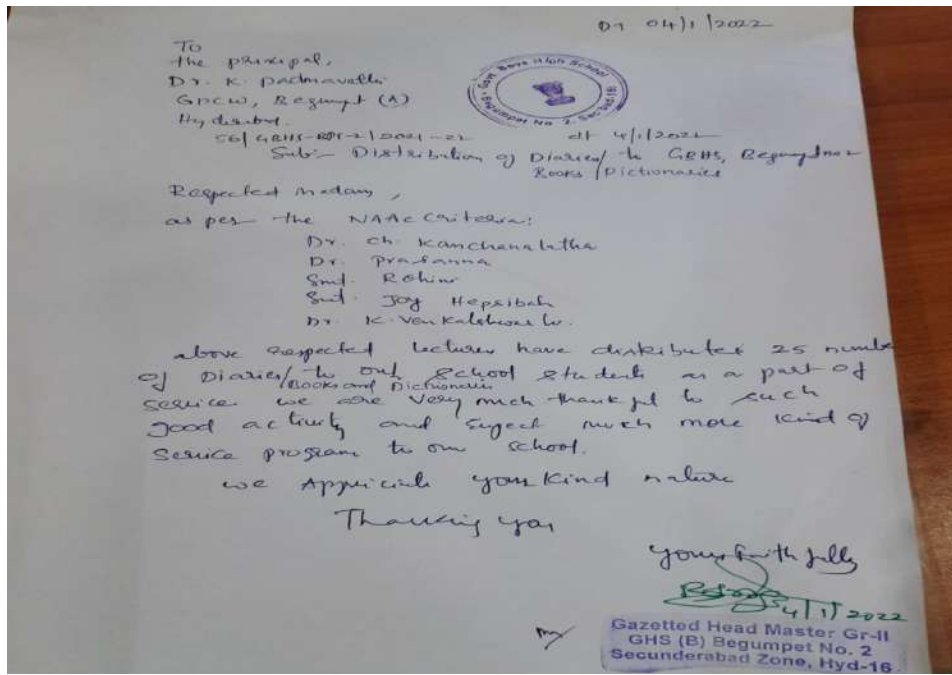 Dt 04/1/2022
To
the principal,
Dr. K. Padmavathi
GDCW, Begumpt (A)
Hyderabad.
Govt. Boys High School
Begumpet No. 2, Sec'bad-16
56/GBHS-BPT-2/2021-22 dt 4/1/2022
Sub:- Distribution of Diaries/ to GBHS, Begumpet no2
Books/Dictionaries
Respected Madam,
as per the NAAC Criteria:
Dr. Ch. Kanchanalatha
Dr. Prasanna
Smt. Rohini
Smt. Joy Hepsibah
Dr. K. Venkateshwar lu.
above respected lecturer have distributed 25 number
of Diaries/ to our School students as a part of
Books and Dictionaries
service we are very much thankful to such
good activity and much more kind of
service program to our school.
we Appriciate your kind nature
Thanking you
yours faithfully
4/1/2022
Gazetted Head Master Gr-II
GHS (B) Begumpet No. 2
Secunderabad Zone, Hyd-16